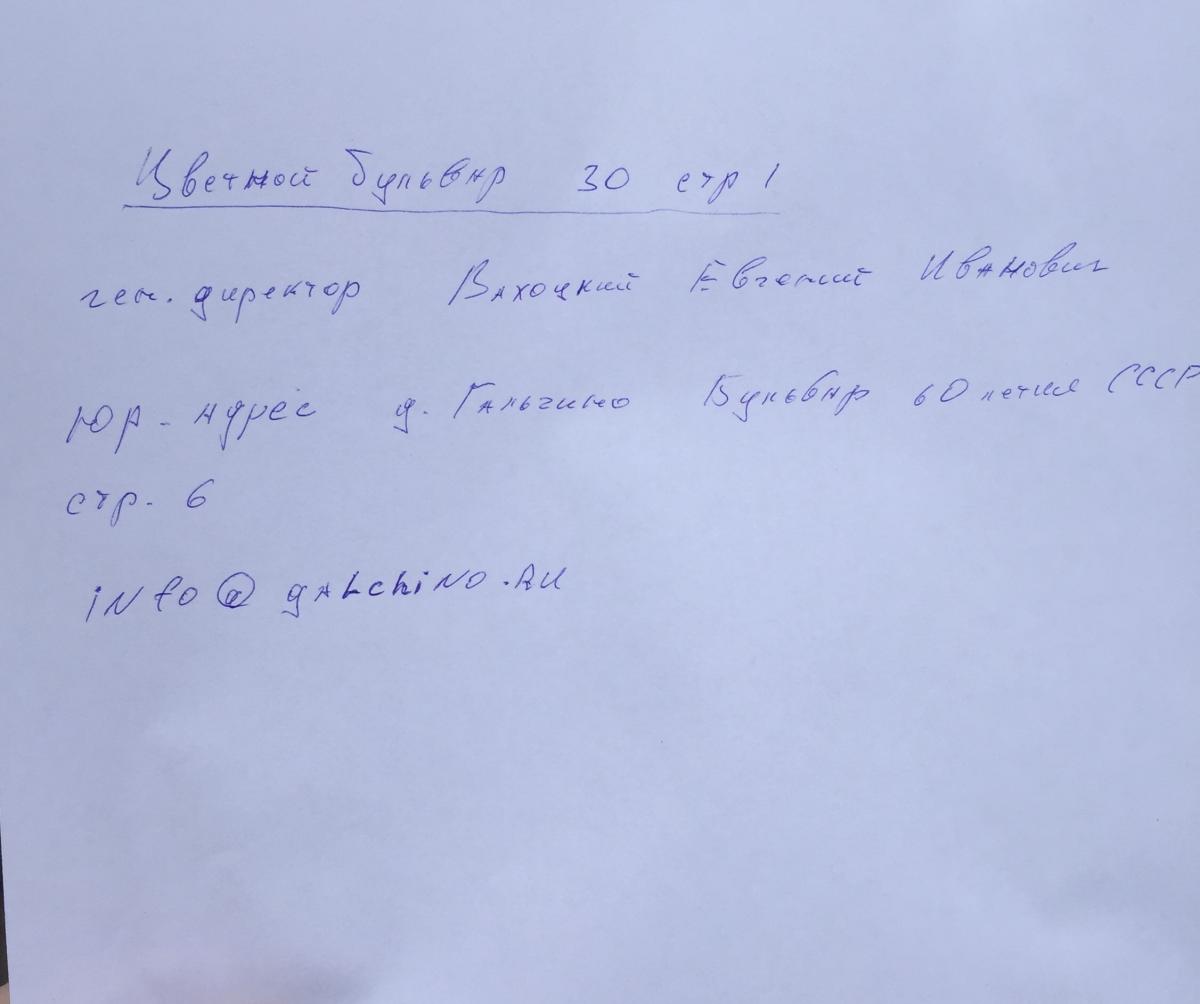 Цветной бульвар 30 стр 1
ген. директор Вахоцкий Евгений Иванович
юр. адрес д. Гальчино Бульвар 60 летия СССР
стр. 6
info@galchino.ru